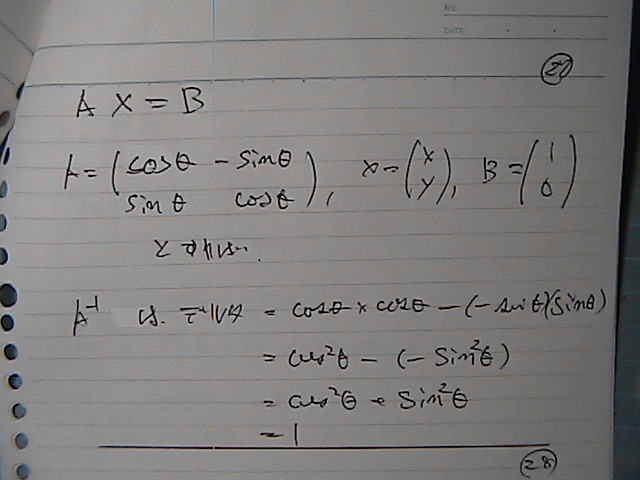 NO.
DATE
27
A X = B
A = (cosθ - sinθ
sinθ cosθ), X = (x
y), B = (1
0)
とすれば、
A⁻¹ は、デルタ = cosθ × cosθ - (- sinθ)(sinθ)
= cos²θ - (- sin²θ)
= cos²θ + sin²θ
= 1
28